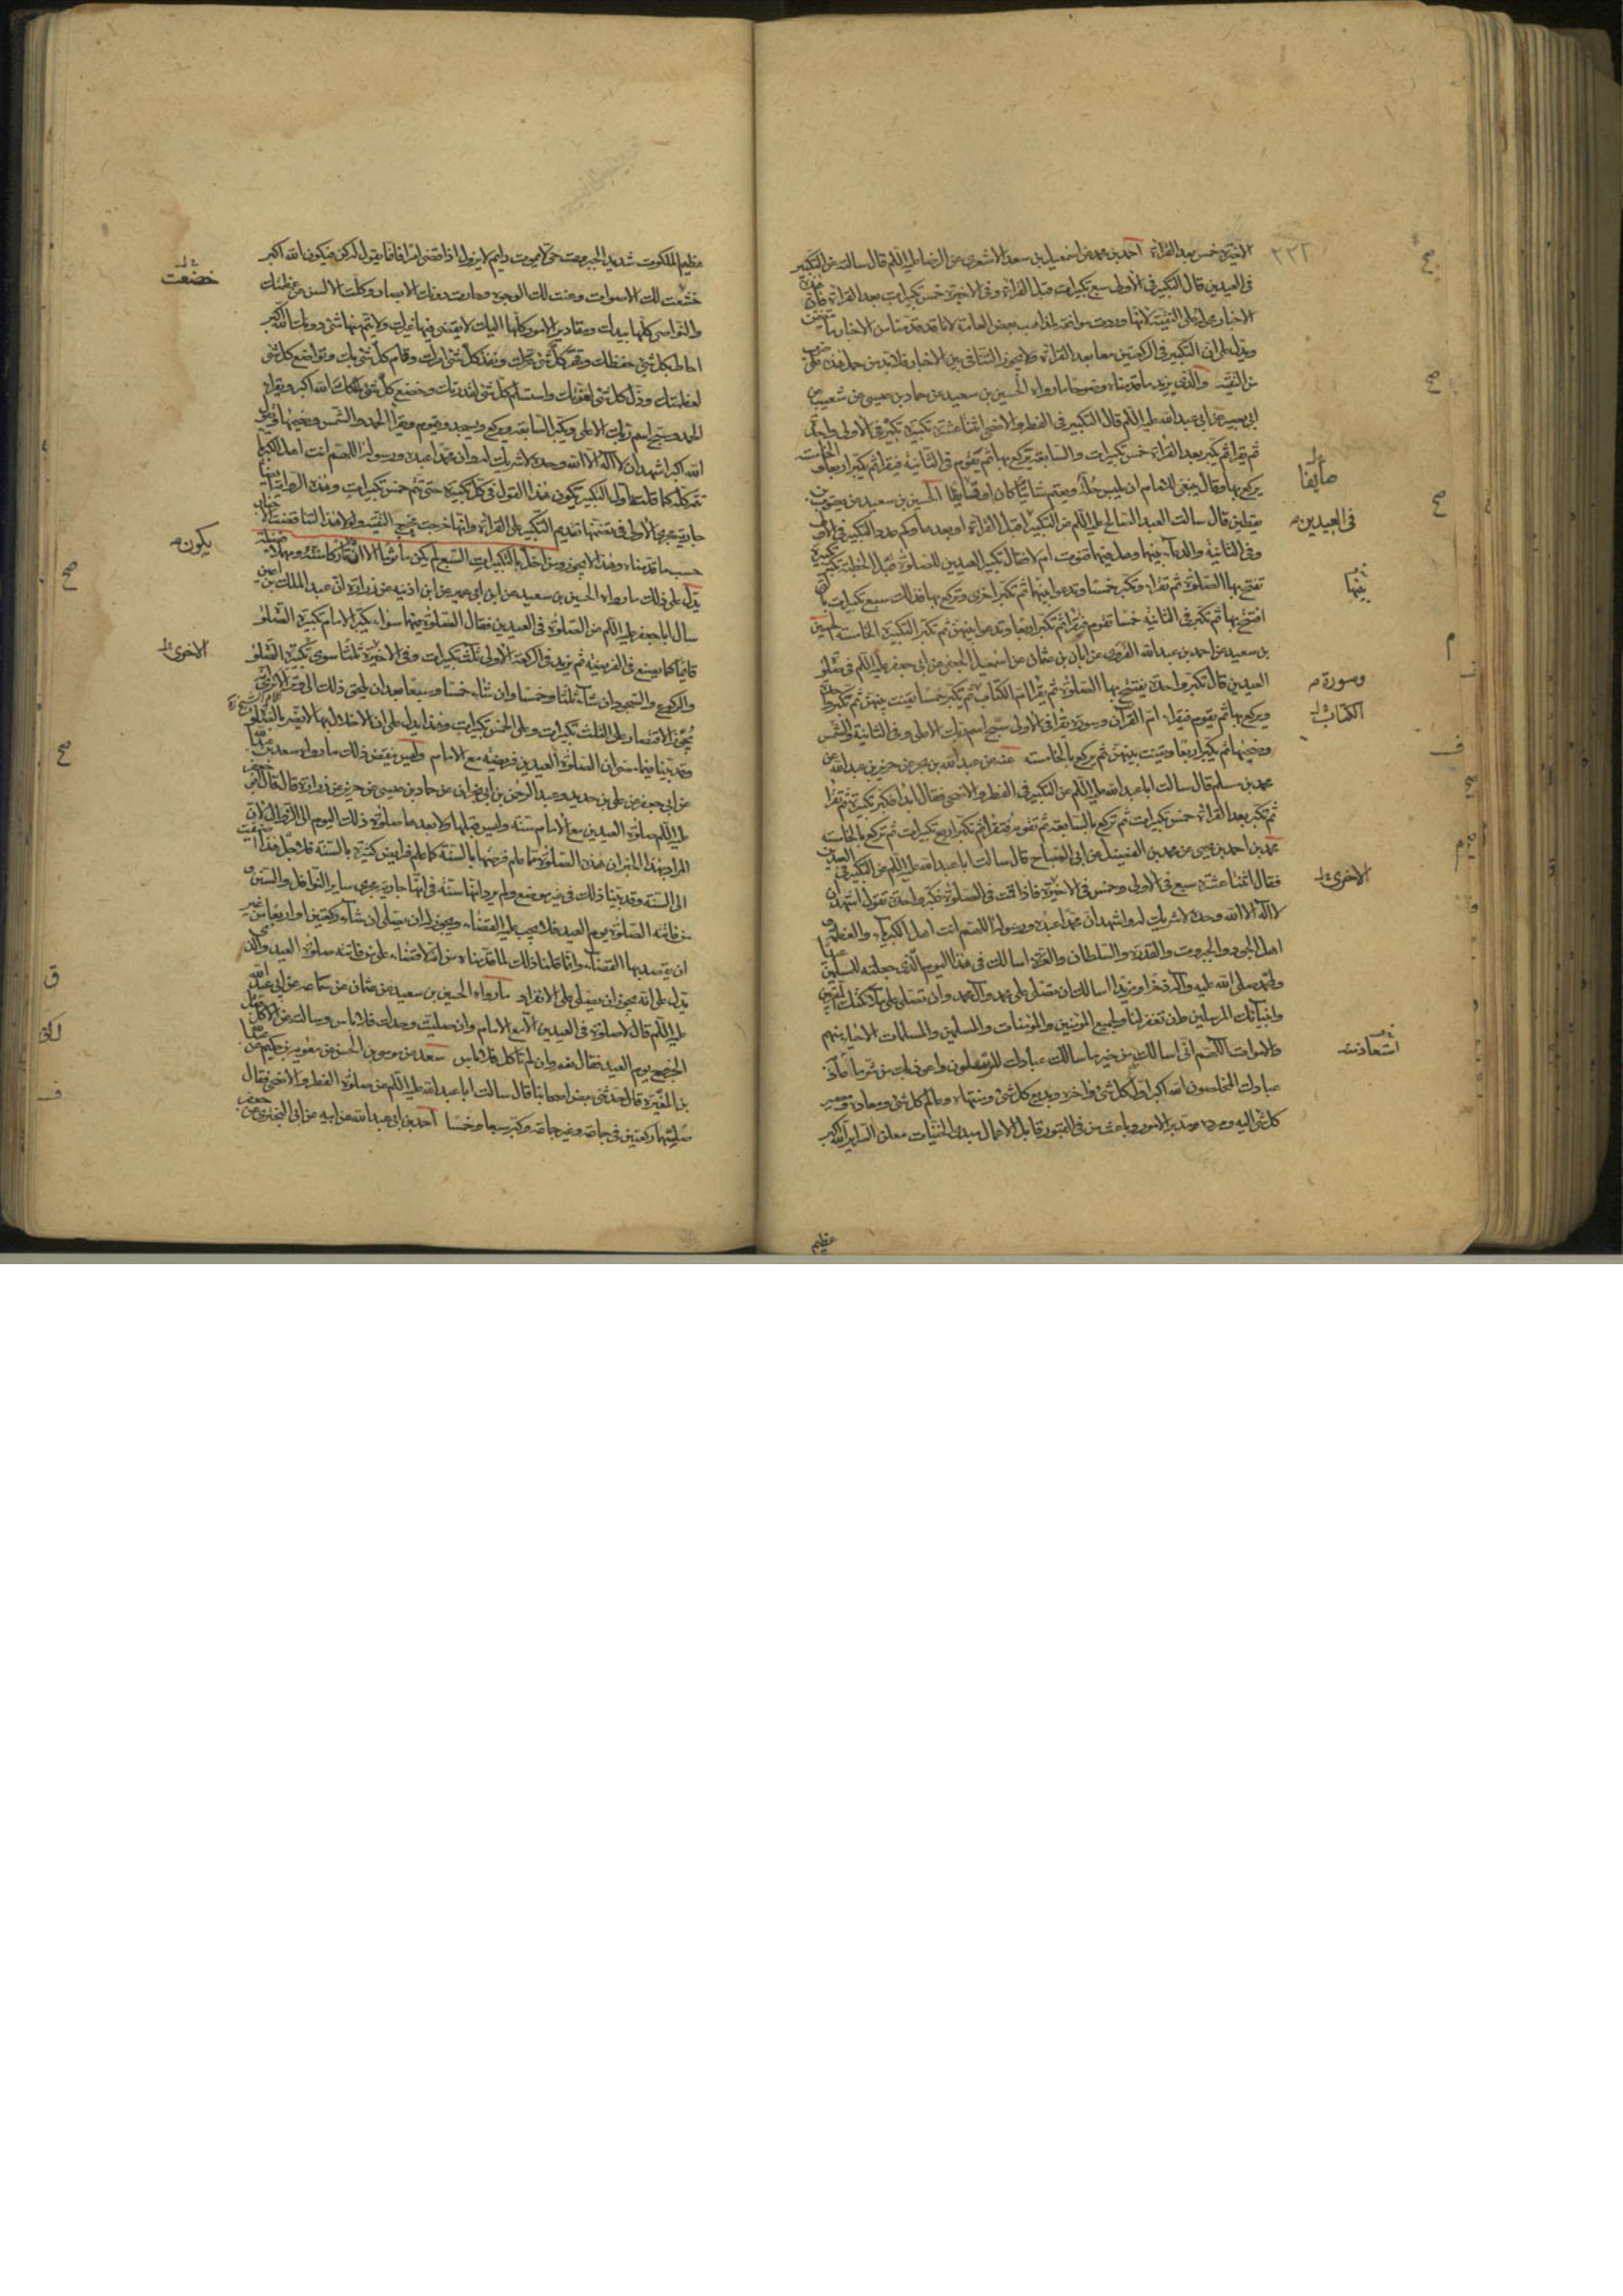 الاخيرة خمس بعد القراءة احمد بن محمد عن اسمعيل بن سعد الاشعرى عن الرضا عليه السلم قال سالته عن التكبير
فى العيدين قال التكبير فى الاولى سبع تكبيرات قبل القراءة وفى الاخيرة خمس تكبيرات بعد القراءة فان هذه
الاخبار محمولة على التقية لانها وردت موافقة لمذاهب بعض العامة لانا قد قدمنا من الاخبار ما تتضمن
ويدل على ان التكبير فى الركعتين معا بعد القراءة ولا يجوز التنافى بين الاخبار فلابد من حمل هذه على ضرب
من التقية والذى يزيد ما قدمناه وضوحا ما رواه الحسين بن سعيد عن حماد بن عيسى عن شعيب عن
ابى بصير عن ابى عبد الله عليه السلم قال التكبير فى الفطر والاضحى اثنتا عشرة تكبيرة تكبر فى الاولى واحدة
ثم تقرا ثم تكبر بعد القراءة خمس تكبيرات والسابعة تركع بها ثم تقوم فى الثانية فيقرا ثم يكبر اربعا والخامسة
يركع بها وقال ينبغى للامام ان يلبس حلة ويعتم شاتيا كان او قايظا الحسين بن سعيد عن يعقوب بن
يقطين قال سالت العبد الصالح عليه السلم عن التكبير قبل القراءة او بعدها وكم عدد التكبير فى الاولى
وفى الثانية والدعاء بينهما وهل فيهما قنوت ام لا فقال تكبير العيدين للصلوة قبل الخطبة تكبر تكبيرة
تفتح بها الصلوة ثم تقرا وتكبر خمسا وتدعو بينها ثم تكبر اخرى وتركع بها فذلك سبع تكبيرات بالتى
افتتح بها ثم تكبر فى الثانية خمسا تقوم فتقرا ثم تكبر اربعا وتدعو بينهن ثم تكبر التكبيرة الخامسة الحسين
بن سعيد عن احمد بن عبد الله القروى عن ابان بن عثمان عن اسمعيل الجعفى عن ابى جعفر عليه السلم فى صلوة
العيدين قال تكبر واحدة يفتتح بها الصلوة ثم يقرا ام الكتاب ثم يكبر خمسا يقنت بينهن ثم تكبر واحدة
ويركع بها ثم يقوم فيقراء ام القرآن وسورة يقرا فى الاولى سبح اسم ربك الاعلى وفى الثانية والشمس
وضحيها ثم يكبر اربعا ويقنت بينهن ثم يركع بالخامسة عنه عن عبد الله بن بحر عن حريز بن عبد الله عن
محمد بن مسلم قال سالت ابا عبد الله عليه السلم عن التكبير فى الفطر والاضحى فقال ابدا فكبر تكبيرة ثم تقرا
ثم تكبر بعد القراءة خمس تكبيرات ثم تركع بالسابعة ثم تقوم فتقرا ثم تكبر اربع تكبيرات ثم تركع بالخامسة
محمد بن احمد بن يحيى عن محمد بن الفضيل عن ابى الصباح قال سالت ابا عبد الله عليه السلم عن التكبير فى العيدين
فقال اثنتا عشرة سبع فى الاولى وخمس فى الاخيرة فاذا قمت فى الصلوة فكبر واحدة تقول اشهد ان
لا اله الا الله وحده لا شريك له واشهد ان محمدا عبده ورسوله اللهم انت اهل الكبرياء والعظمة و
اهل الجود والجبروت والقدرة والسلطان والعزة اسالك فى هذا اليوم الذى جعلته للمسلمين عيدا
ولمحمد صلى الله عليه وآله ذخرا ومزيدا اسالك ان تصلى على محمد وآل محمد وان تصلى على ملائكتك المقربين
وانبيائك المرسلين وان تغفر لنا ولجميع المؤمنين والمؤمنات والمسلمين والمسلمات الاحياء منهم
والاموات اللهم انى اسالك من خير ما سالك عبادك المرسلون واعوذ بك من شر ما عاذ
عبادك المخلصون الله اكبر اول كل شىء واخره وبديع كل شىء ومنتهاه وعالم كل شىء ومعاده ومصير
كل شىء اليه ومرده ومدبر الامور وباعث من فى القبور قابل الاعمال مبدى الخفيات معلن السراير الله اكبر
عظيم
٢٢٢
صايفا
فى العيدين
بينها
وسورة
الكتاب
الاخرى
استعاذ منه
عظيم الملكوت شديد الجبروت حى لا يموت دايم لا يزول اذا قضى امرا فانما يقول له كن فيكون الله اكبر
خشعت لك الاصوات وعنت لك الوجوه وحارت دونك الابصار وكلت الالسن عن عظمتك
والنواصى كلها بيدك ومقادير الامور كلها اليك لا يقضى فيها غيرك ولا يتم منها شىء دونك الله اكبر
احاط بكل شىء حفظك وقهر كل شىء عزك ونفذ كل شىء امرك وقام كل شىء بك وتواضع كل شىء
لعظمتك وذل كل شىء لعزتك واستسلم كل شىء لقدرتك وخضع كل شىء لملكك الله اكبر ويقرا
الحمد وسبح اسم ربك الاعلى ويكبر السابعة ويركع ويسجد ويقوم ويقرا الحمد والشمس وضحيها ويقول
الله اكبر اشهد ان لا اله الا الله وحده لا شريك له وان محمدا عبده ورسوله اللهم انت اهل الكبرياء
تتمه كله كما قلت اول التكبير يكون هذا القول فى كل تكبيرة حتى تتم خمس تكبيرات وهذه الرواية ايضا
جارية مجرى الاولى فى تضمنها تقديم التكبير على القراءة وانها خرجت مخرج التقية ولولا هذا لتناقضت الاخبار
حسب ما قدمناه وهذا لا يجوز ومن اخل بالتكبيرات السبع لم يكن ماثوما الا انه تارك سنة ومهمل فضيلة
يدل على ذلك ما رواه الحسين بن سعيد عن ابن ابى عمير عن ابن اذينه عن زرارة ان عبد الملك بن اعين
سال ابا جعفر عليه السلم عن الصلوة فى العيدين فقال الصلوة فيهما سواء يكبر الامام تكبيرة الصلوة
قائما كما يصنع فى الفريضة ثم يزيد فى الركعة الاولى ثلث تكبيرات وفى الاخيرة ثلثا سوى تكبيرة الصلوة
والركوع والسجود وان شاء ثلثا وخمسا وان شاء خمسا وسبعا بعد ان يلحق ذلك الى وتر الا ترى انه
يجوز الاقتصار على الثلث تكبيرات وعلى الخمس تكبيرات وهذا يدل على ان الاخلال بها لا يضر بالصلوة
وقد بينا فيما مضى ان الصلوة العيدين فريضة مع الامام وليس ينقض ذلك ما رواه سعد بن عبد الله
عن ابى جعفر عن على بن حديد وعبد الرحمن بن ابى نجران عن حماد بن عيسى عن حريز عن زرارة قال قال ابو جعفر
عليه السلم صلوة العيدين مع الامام سنة وليس قبلها ولا بعدها صلوة ذلك اليوم الى الزوال لان
المراد بهذا الخبر ان هذه الصلوة مما علم فرضها بالسنة كما علم فرايض كثيرة بالسنة فلاجل هذا اضيفت
الى السنة وقد بينا ذلك فى غير موضع ولم يرد انها سنة فى انها جارية مجرى ساير النوافل والسنن و
من فاتته الصلوة يوم العيد فلا يجب عليه القضاء ويجوز له ان يصلى ان شاء ركعتين او اربعا من غير
ان يقصد بها القضاء وانما قلنا ذلك لما قدمناه من انه لا قضاء على من فاتته صلوة العيد والذى
يدل على انه يجوز ان يصلى على الانفراد ما رواه الحسين بن سعيد عن عثمان عن سماعه عن ابى عبد الله
عليه السلم قال لا صلوة فى العيدين الا مع الامام وان صليت وحدك فلا باس وسالته عن الاكل قبل
الخروج يوم العيد فقال نعم وان لم تاكل فلا باس سعد عن موسى بن الحسن عن معوية بن حكيم عن عبد الله
بن المغيرة قال حدثنى بعض اصحابنا قال سالت ابا عبد الله عليه السلم عن صلوة الفطر والاضحى فقال
صليهما ركعتين فى جماعة وغير جماعة وكبر سبعا وخمسا احمد بن ابى عبد الله عن ابيه عن ابى البخترى عن جعفر
خضعت
يكون
الاخرى